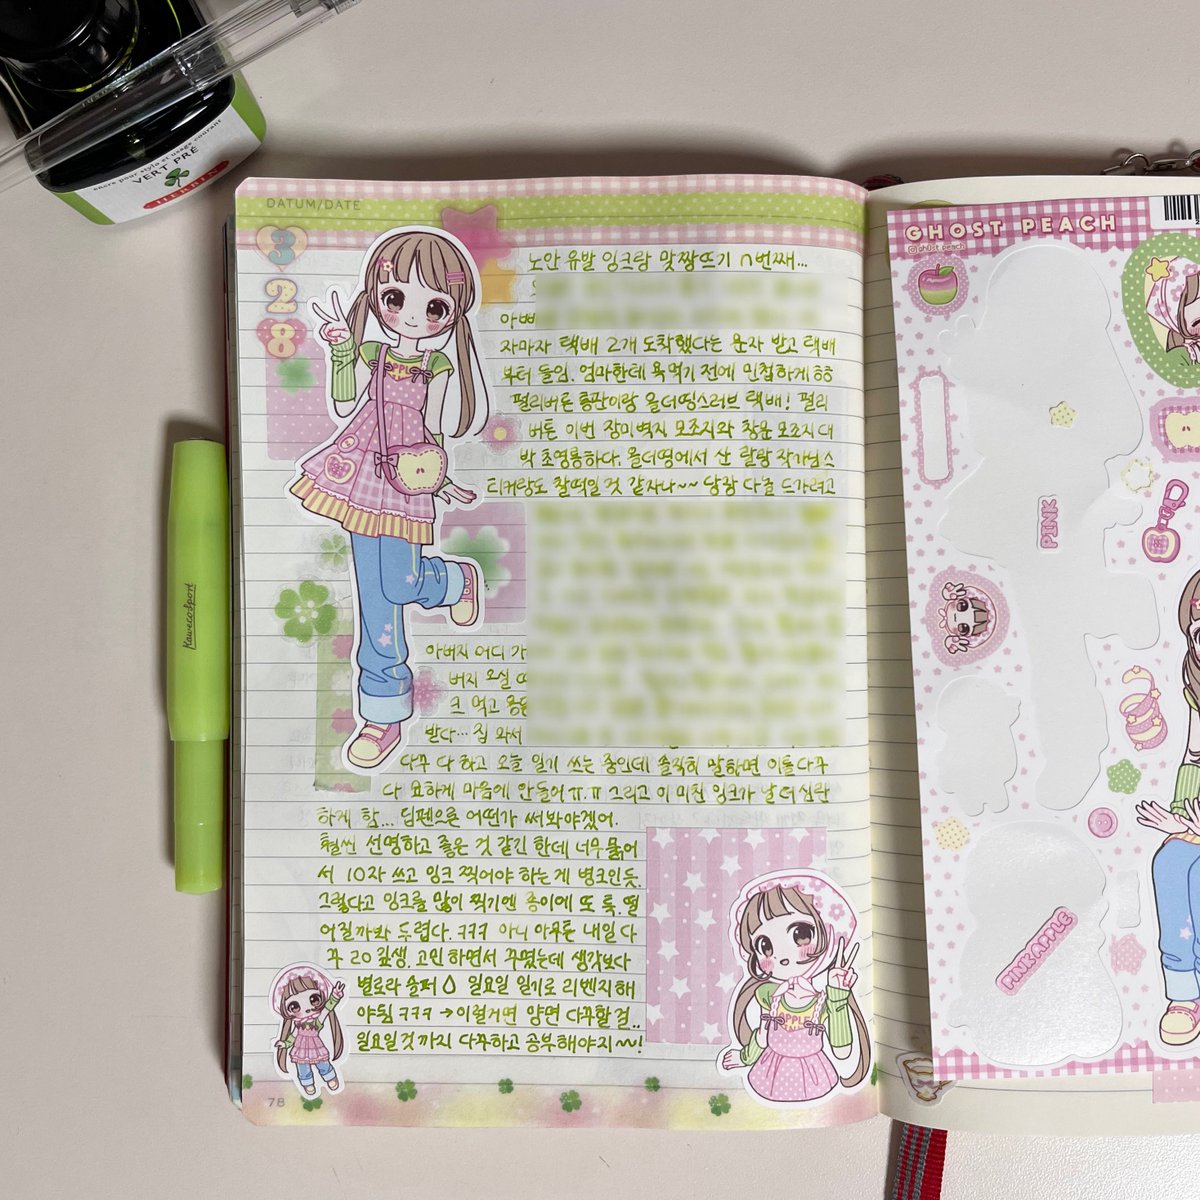 encre pour stylo et usage courant
VERT PRÉ
HERBIN
DATUM/DATE
3
2
8
노안 유발 잉크랑 맞짱뜨기 n번째...
아빠
자마자 택배 2개 도착했다는 문자 받고 택배
부터 들임. 엄마한테 욕먹기 전에 민첩하게 ㅎㅎ
펄리버튼 통판이랑 올더띵스러브 택배! 펄리
버튼 이번 장미벽지 모조지와 창문 모조지 대
박 초영롱하다. 올더띵에서 산 랄랑 작가님 스
티커랑도 찰떡일 것 같자나~~ 낭랑 다 쓸 드가려고
아버지 어디 가
버지 오실 때
크 먹고 용돈
받다... 집 와서
다꾸 다 하고 오늘 일기 쓰는 중인데 솔직히 말하면 이틀 다꾸
다 묘하게 마음에 안들어ㅠ.ㅠ 그리고 이 미친 잉크가 날 더 심란
하게 함... 딥펜으론 어떤가 써봐야겠어.
훨씬 선명하고 좋은 것 같긴 한데 너무 묽어
서 10자 쓰고 잉크 찍어야 하는게 병크인듯.
그렇다고 잉크를 많이 찍기엔 종이에 또 룩. 떨
어질까봐 두렵다. ㅋㅋㅋ 아니 아무튼 내일 다
꾸 20 깊생, 고인 하면서 꾸몄는데 생각보다
별로라 슬퍼 일요일 일기로 리벤지 해
야듸 ㅋㅋㅋ →이럴거면 양면 다꾸할 걸..
일요일 것까지 다꾸하고 공부해야지~!
78
Kaweco Sport
APPLE
GHOST PEACH
gh0st.peach
PINK
PINK APPLE
APPLE